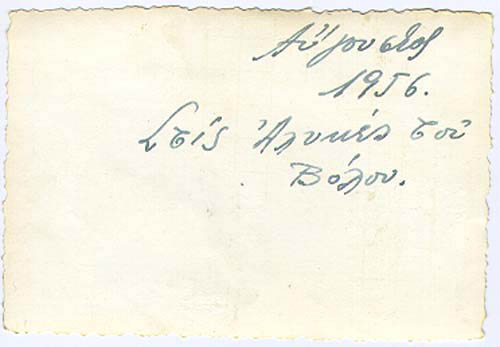 Αὔγουστος
1956.
Στίς Ἀλυκές τοῦ
Βόλου.